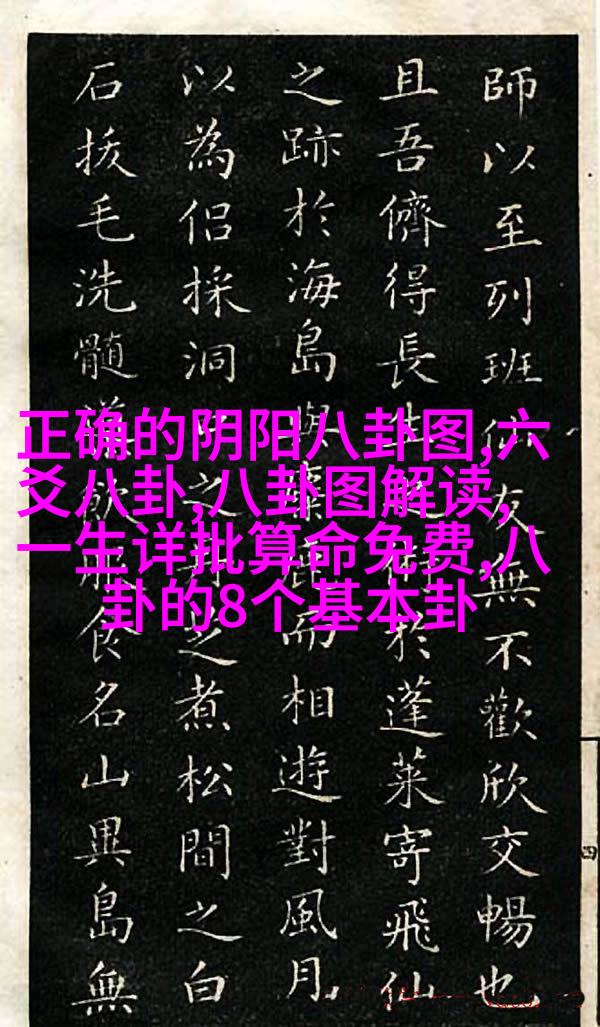 師以至列班仙友無不歡欣交暢也
且吾儕得長生於蓬萊寄飛仙
之跡於海島與而相遊對風月
以為侶採洞之之煮松間之白
石拔毛洗髓飲食名山異島無
正确的阴阳八卦图,六
爻八卦,八卦图解读,
一生详批算命免费,八
卦的8个基本卦
四